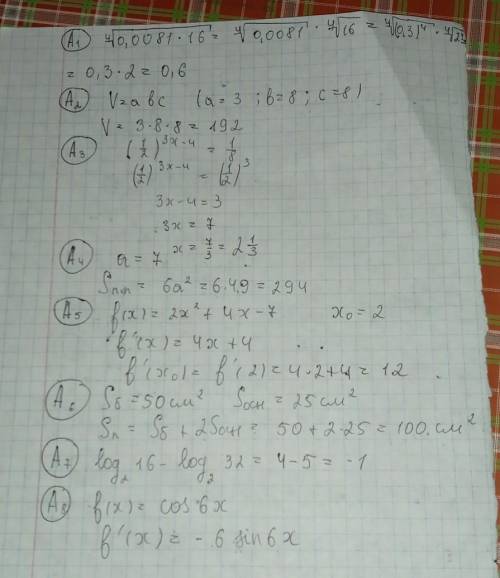 A1 ∜0,0081·16 = ∜0,0081 · ∜16 = ∜(0,3)⁴ · ∜2⁴
= 0,3·2 = 0,6
A2 V=abc (a=3; b=8; c=8)
V = 3·8·8 = 192
A3 (1/2)^3x-4 = 1/8
(1/2)^3x-4 = (1/2)^3
3x-4=3
3x=7
x = 7/3 = 2 1/3
A4 a=7
Sпп = 6a² = 6·49 = 294
A5 f(x) = 2x²+4x-7 x₀=2
f'(x) = 4x+4
f'(x₀) = f'(2) = 4·2+4 = 12
A6 Sб = 50 см² Sосн = 25 см²
Sп = Sб + 2Sосн = 50+2·25 = 100 см²
A7 log₂ 16 - log₂ 32 = 4-5 = -1
A8 f(x) = cos 6x
f'(x) = -6 sin 6x